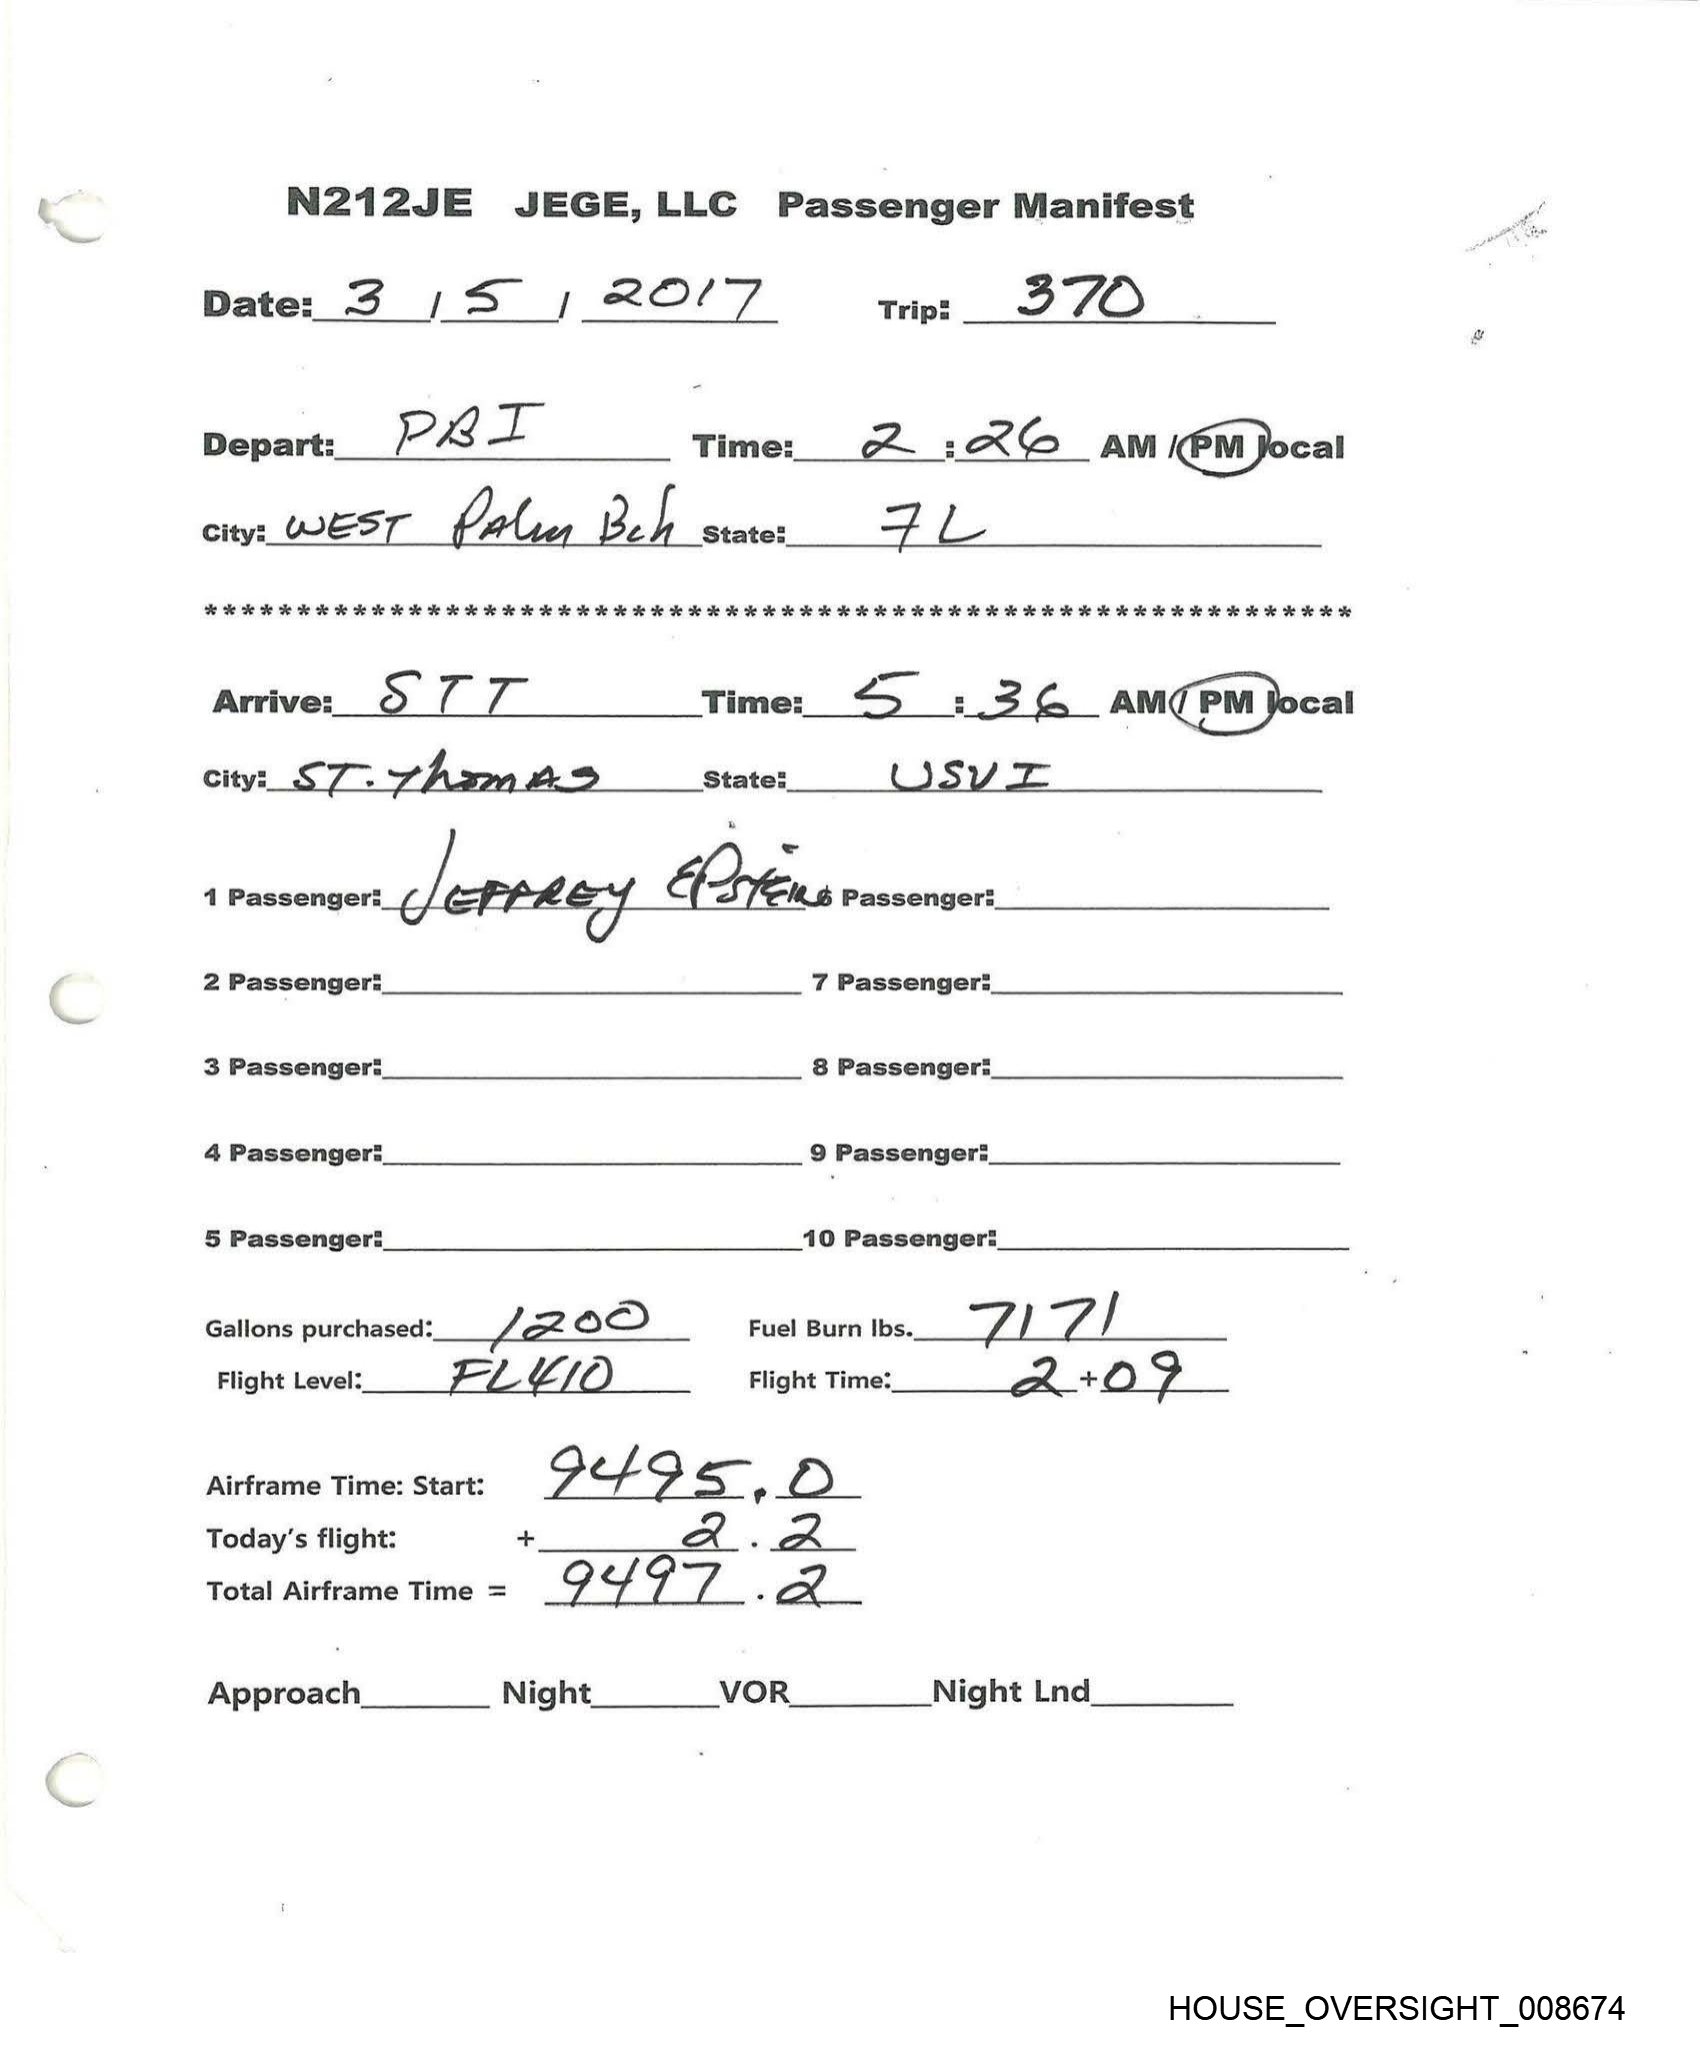 N212JE JEGE, LLC Passenger Manifest
Date: 3 / 5 / 2017 Trip: 370
Depart: PBI Time: 2 : 26 AM / PM local
City: WEST Palm Bch State: FL
*****************************************************************
Arrive: STT Time: 5 : 36 AM / PM local
City: ST. Thomas State: USVI
1 Passenger: JEFFREY EPSTEIN 6 Passenger:
2 Passenger: 7 Passenger:
3 Passenger: 8 Passenger:
4 Passenger: 9 Passenger:
5 Passenger: 10 Passenger:
Gallons purchased: 1200 Fuel Burn lbs. 7171
Flight Level: FL410 Flight Time: 2 + 09
Airframe Time: Start: 9495.0
Today's flight: + 2.2
Total Airframe Time = 9497.2
Approach Night VOR Night Lnd
HOUSE_OVERSIGHT_008674